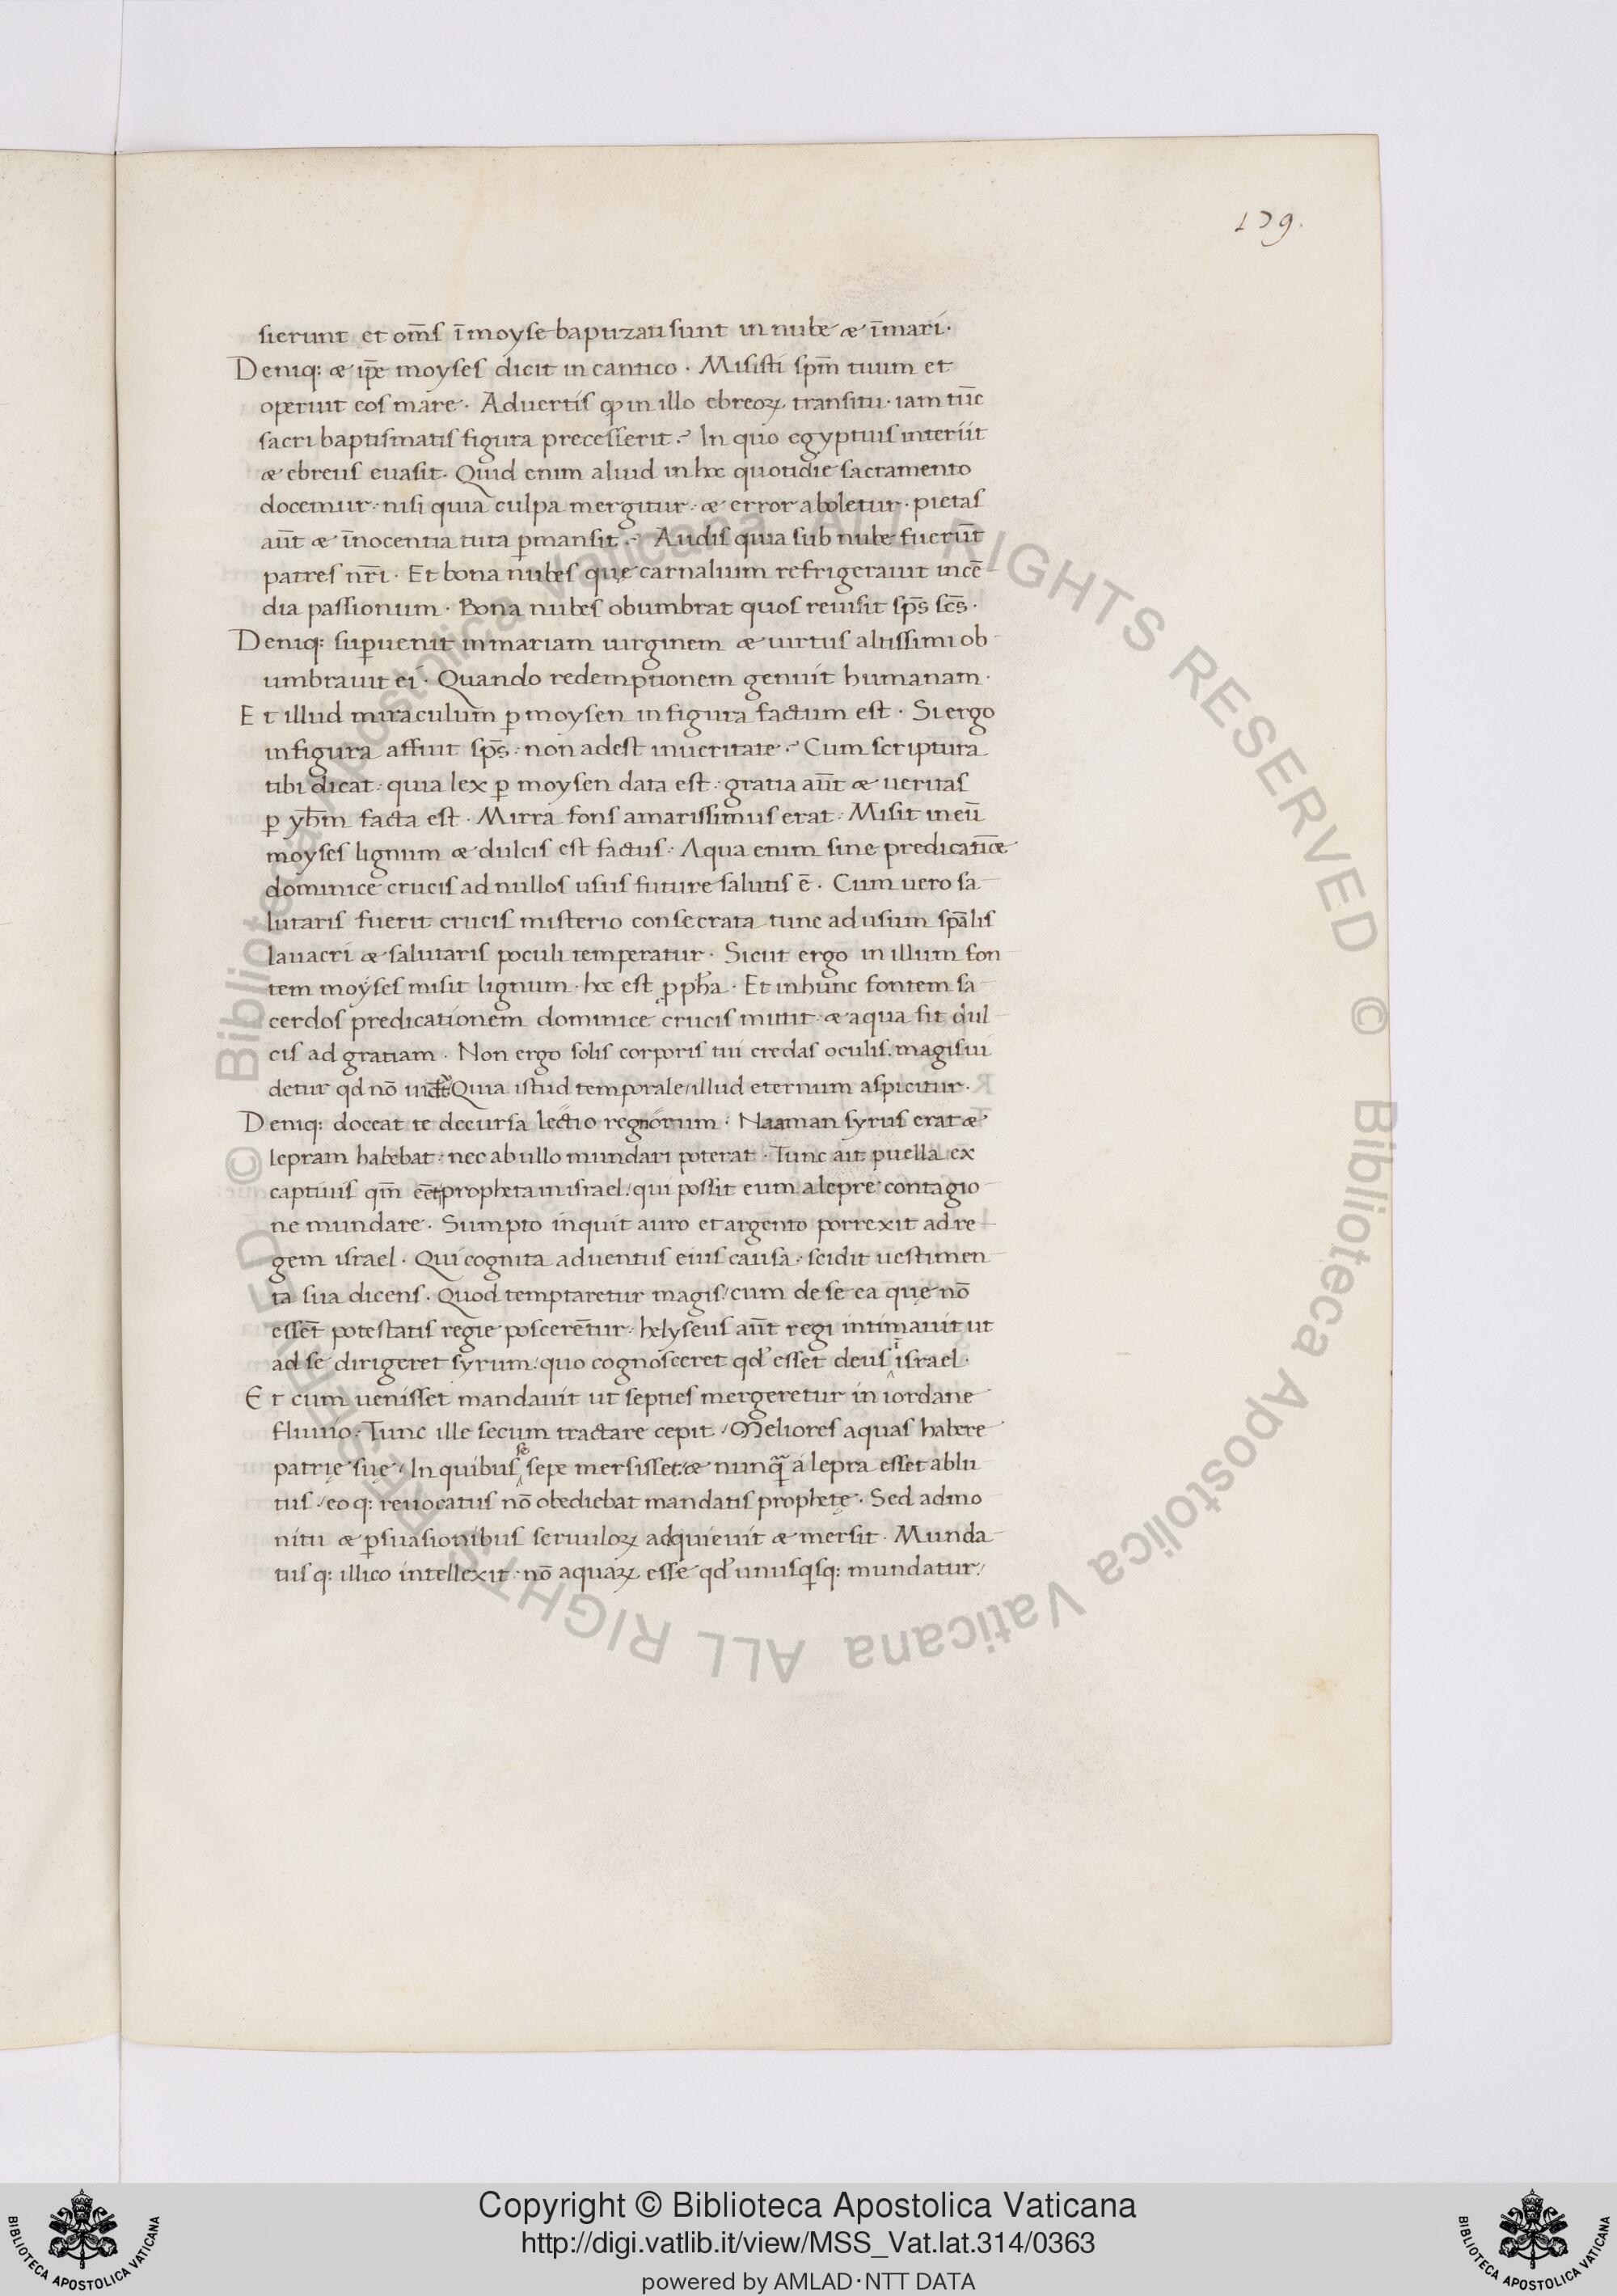 179.
sierunt et om̅s i̅ moyse baptizati sunt in nube & i̅ mari.
Deniq: & ip̅e moyses dicit in cantico. Misisti sp̅m tuum et
operuit eos mare. Advertis ꝙ in illo ebreoꝝ transitu. iam tu̅c
sacri baptismatis figura precesserit. In quo egyptius interiit
& ebreus euasit. Quid enim aliud in hoc quotidie sacramento
docemur. nisi quia culpa mergitur. & error aboletur. pietas
au̅t & i̅nocentia tuta ꝑmansit. Audis quia sub nube fueru̅t
patres nr̅i. Et bona nubes quę carnalium refrigerauit ince̅
dia passionum. Bona nubes obumbrat quos reuisit sp̅s sc̅s.
Deniq: suꝑuenit in mariam uirginem & uirtus altissimi ob
umbrauit ei. Quando redemptionem genuit humanam.
Et illud miraculum ꝑ moysen in figura factum est. Si ergo
in figura affuit sp̅s. non adest in ueritate. Cum scriptura
tibi dicat. quia lex ꝑ moysen data est. gratia au̅t & ueritas
ꝑ yh̅m facta est. Mirra fons amarissimus erat. Misit in eu̅
moyses lignum & dulcis est factus. Aqua enim sine predicatio̅e
dominice crucis ad nullos usus future salutis e̅. Cum uero sa
lutaris fuerit crucis misterio consecrata tunc ad usum sp̅alis
lauacri & salutaris poculi temperatur. Sicut ergo in illum fon
tem moyses misit lignum. hoc est ꝓpha̅. Et in hunc fontem sa
cerdos predicationem dominice crucis mittit. & aqua fit dul
cis ad gratiam. Non ergo solis corporis tui credas oculis. magis ui
detur qd no̅ uidet᷑ Quia istud temporale/illud eternum aspicitur.
Deniq: doceat te decursa lectio regnorum. Naaman syrus erat &
lepram habebat. nec ab ullo mundari poterat. Tunc ait puella ex
captiuis qm̅ ee̅t propheta in israel. qui possit eum a lepre contagio
ne mundare. Sumpto inquit auro et argento porrexit ad re
gem israel. Qui cognita aduentus eius causa. scidit uestimen
ta sua dicens. Quod temptaretur magis/cum de se ea quę no̅
esse̅t potestatis regie poscere̅tur. helyseus au̅t regi intimauit ut
ad se dirigeret syrum. quo cognosceret qd esset deus i̅ israel.
Et cum uenisset mandauit ut septies mergeretur in iordane
fluuio. Tunc ille secum tractare cepit/Meliores aquas habere
patrię suę/In quibus se sepe mersisset. & nunq̅ a lepra esset ablu
tus/eoq: reuocatus no̅ obediebat mandatis prophetę. Sed admo
nitu & ꝑsuasionibus seruuloꝝ adquieuit & mersit. Munda
tusq: illico intellexit. no̅ aquaꝝ esse qd unusq̅sq: mundatur/
Copyright © Biblioteca Apostolica Vaticana
http://digi.vatlib.it/view/MSS_Vat.lat.314/0363
powered by AMLAD·NTT DATA
BIBLIOTECA APOSTOLICA VATICANA
BIBLIOTECA APOSTOLICA VATICANA
© Biblioteca Apostolica Vaticana ALL RIGHTS RESERVED
© Biblioteca Apostolica Vaticana ALL RIGHTS RESERVED